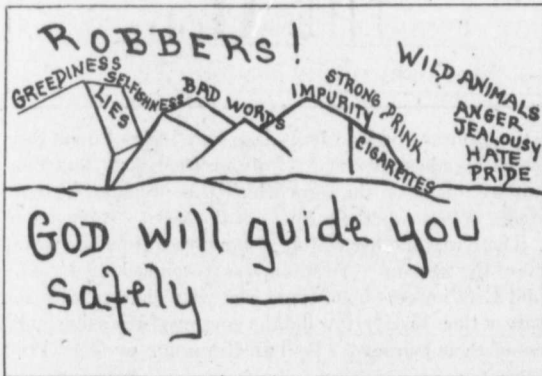 ROBBERS!
GREEDINESS
LIES
SELFISHNESS
BAD WORDS
IMPURITY
STRONG DRINK
CIGARETTES
WILD ANIMALS
ANGER
JEALOUSY
HATE
PRIDE
GOD will guide you
safely —